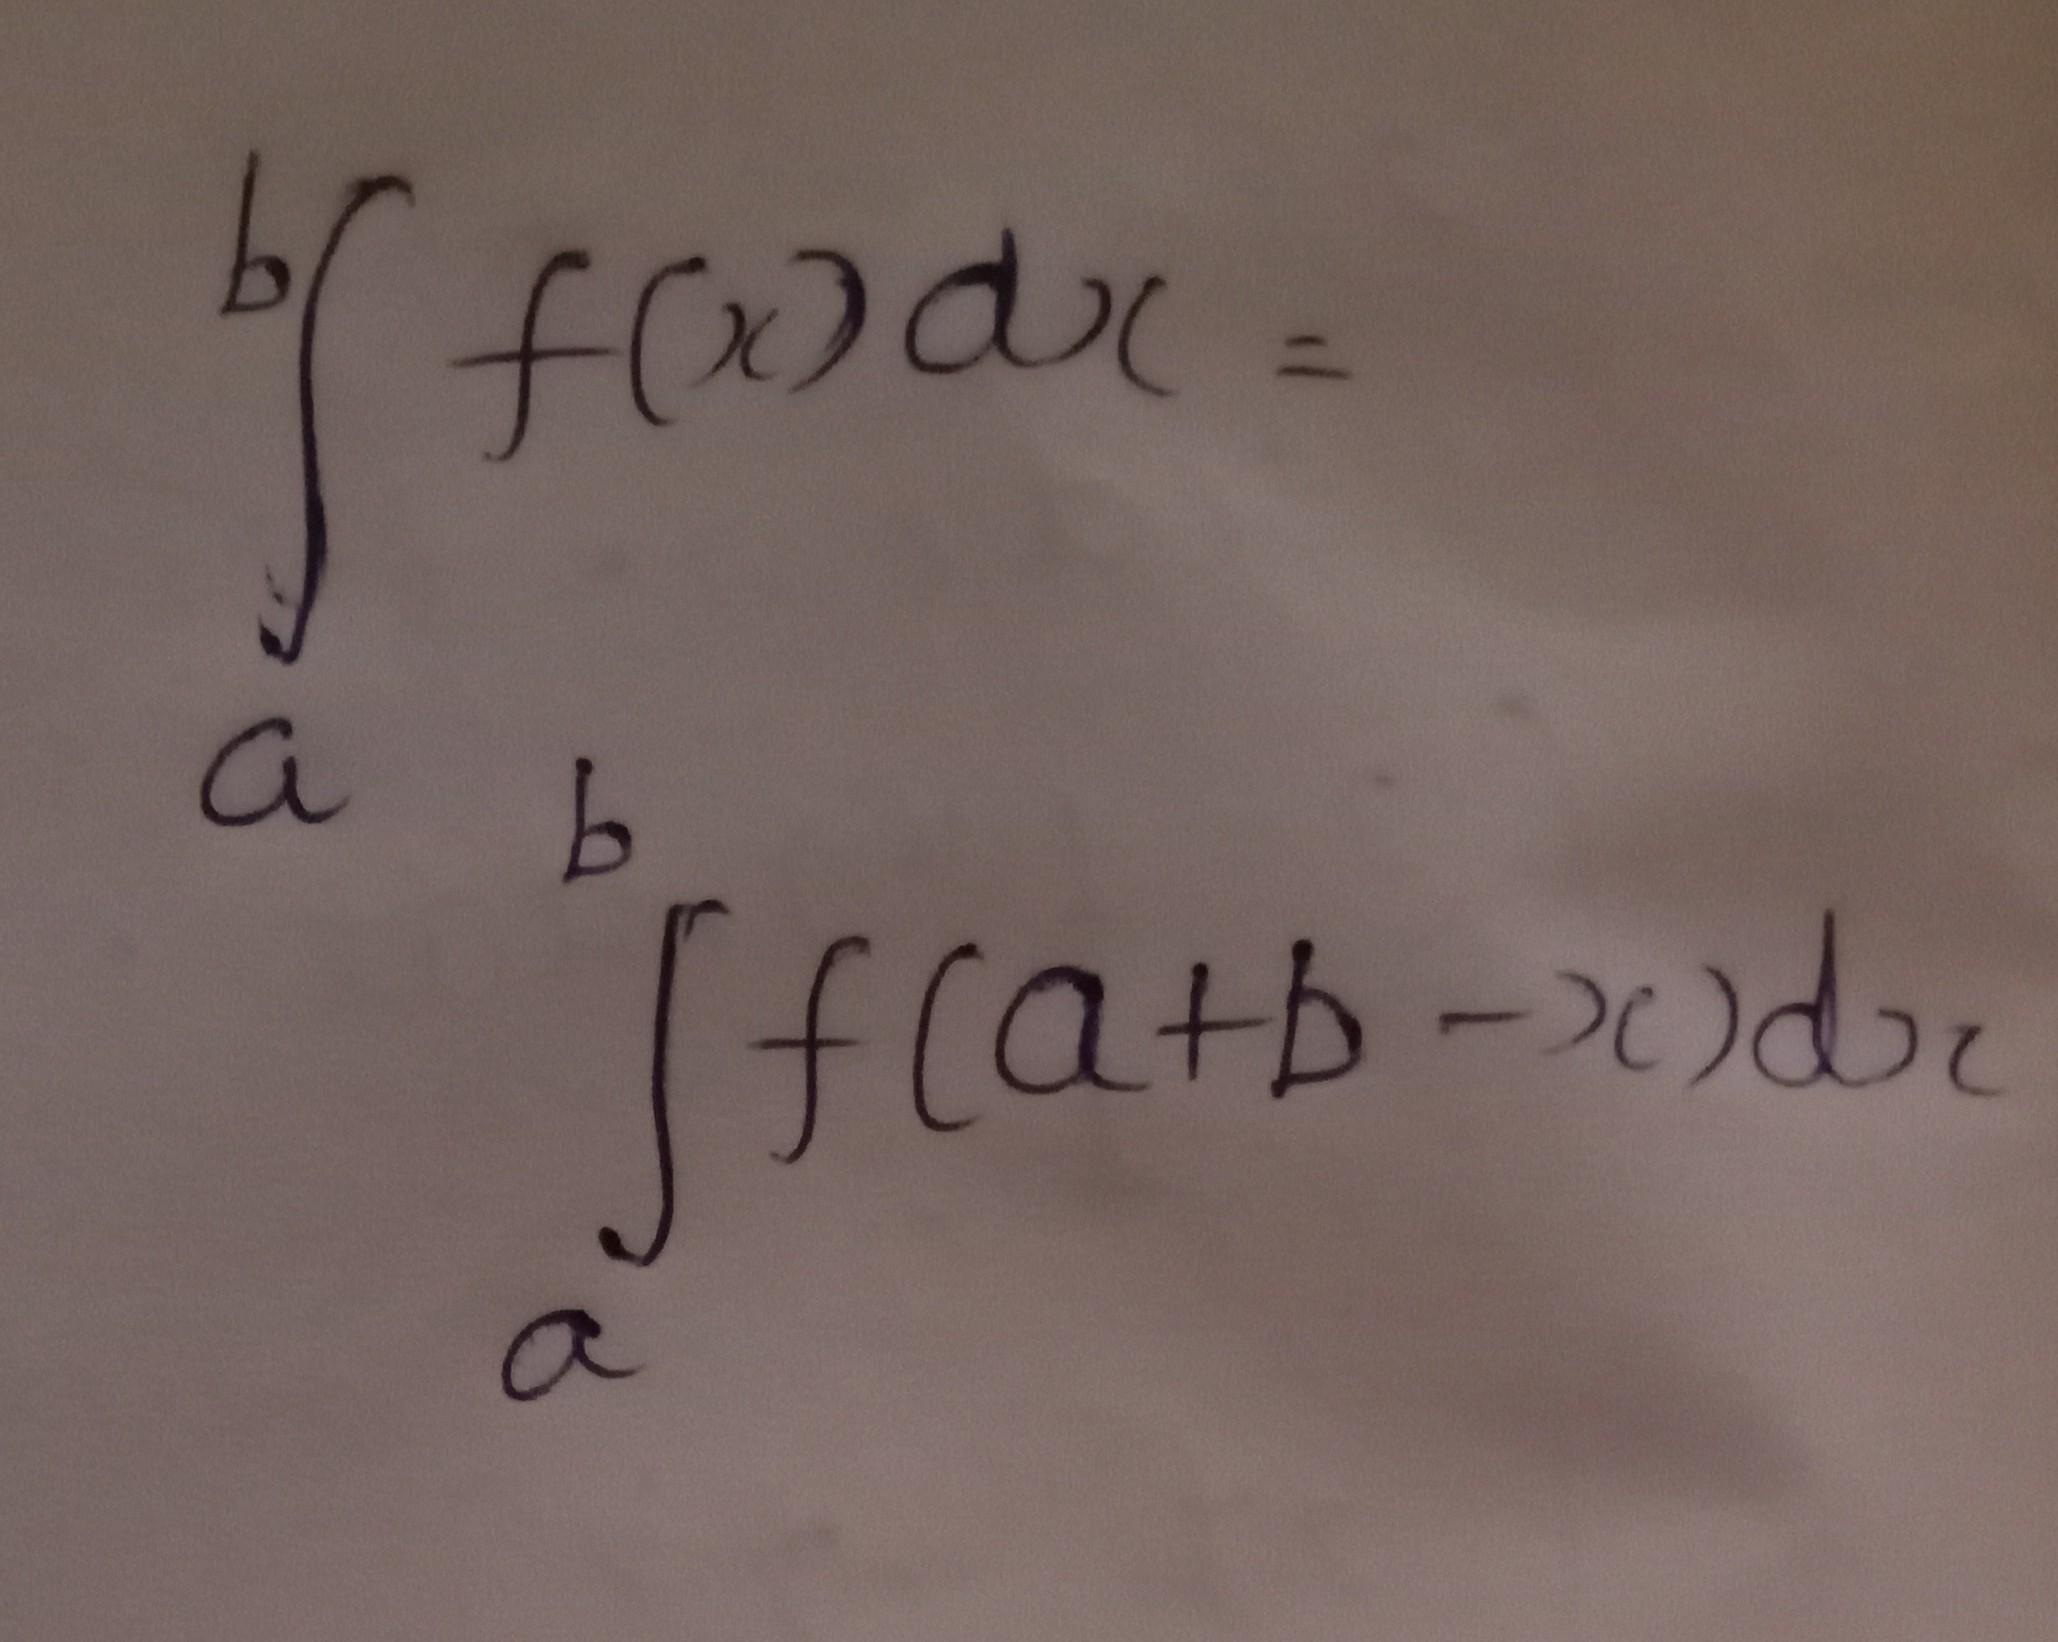 ∫_a^b f(x) dx =
∫_a^b f(a+b-x) dx